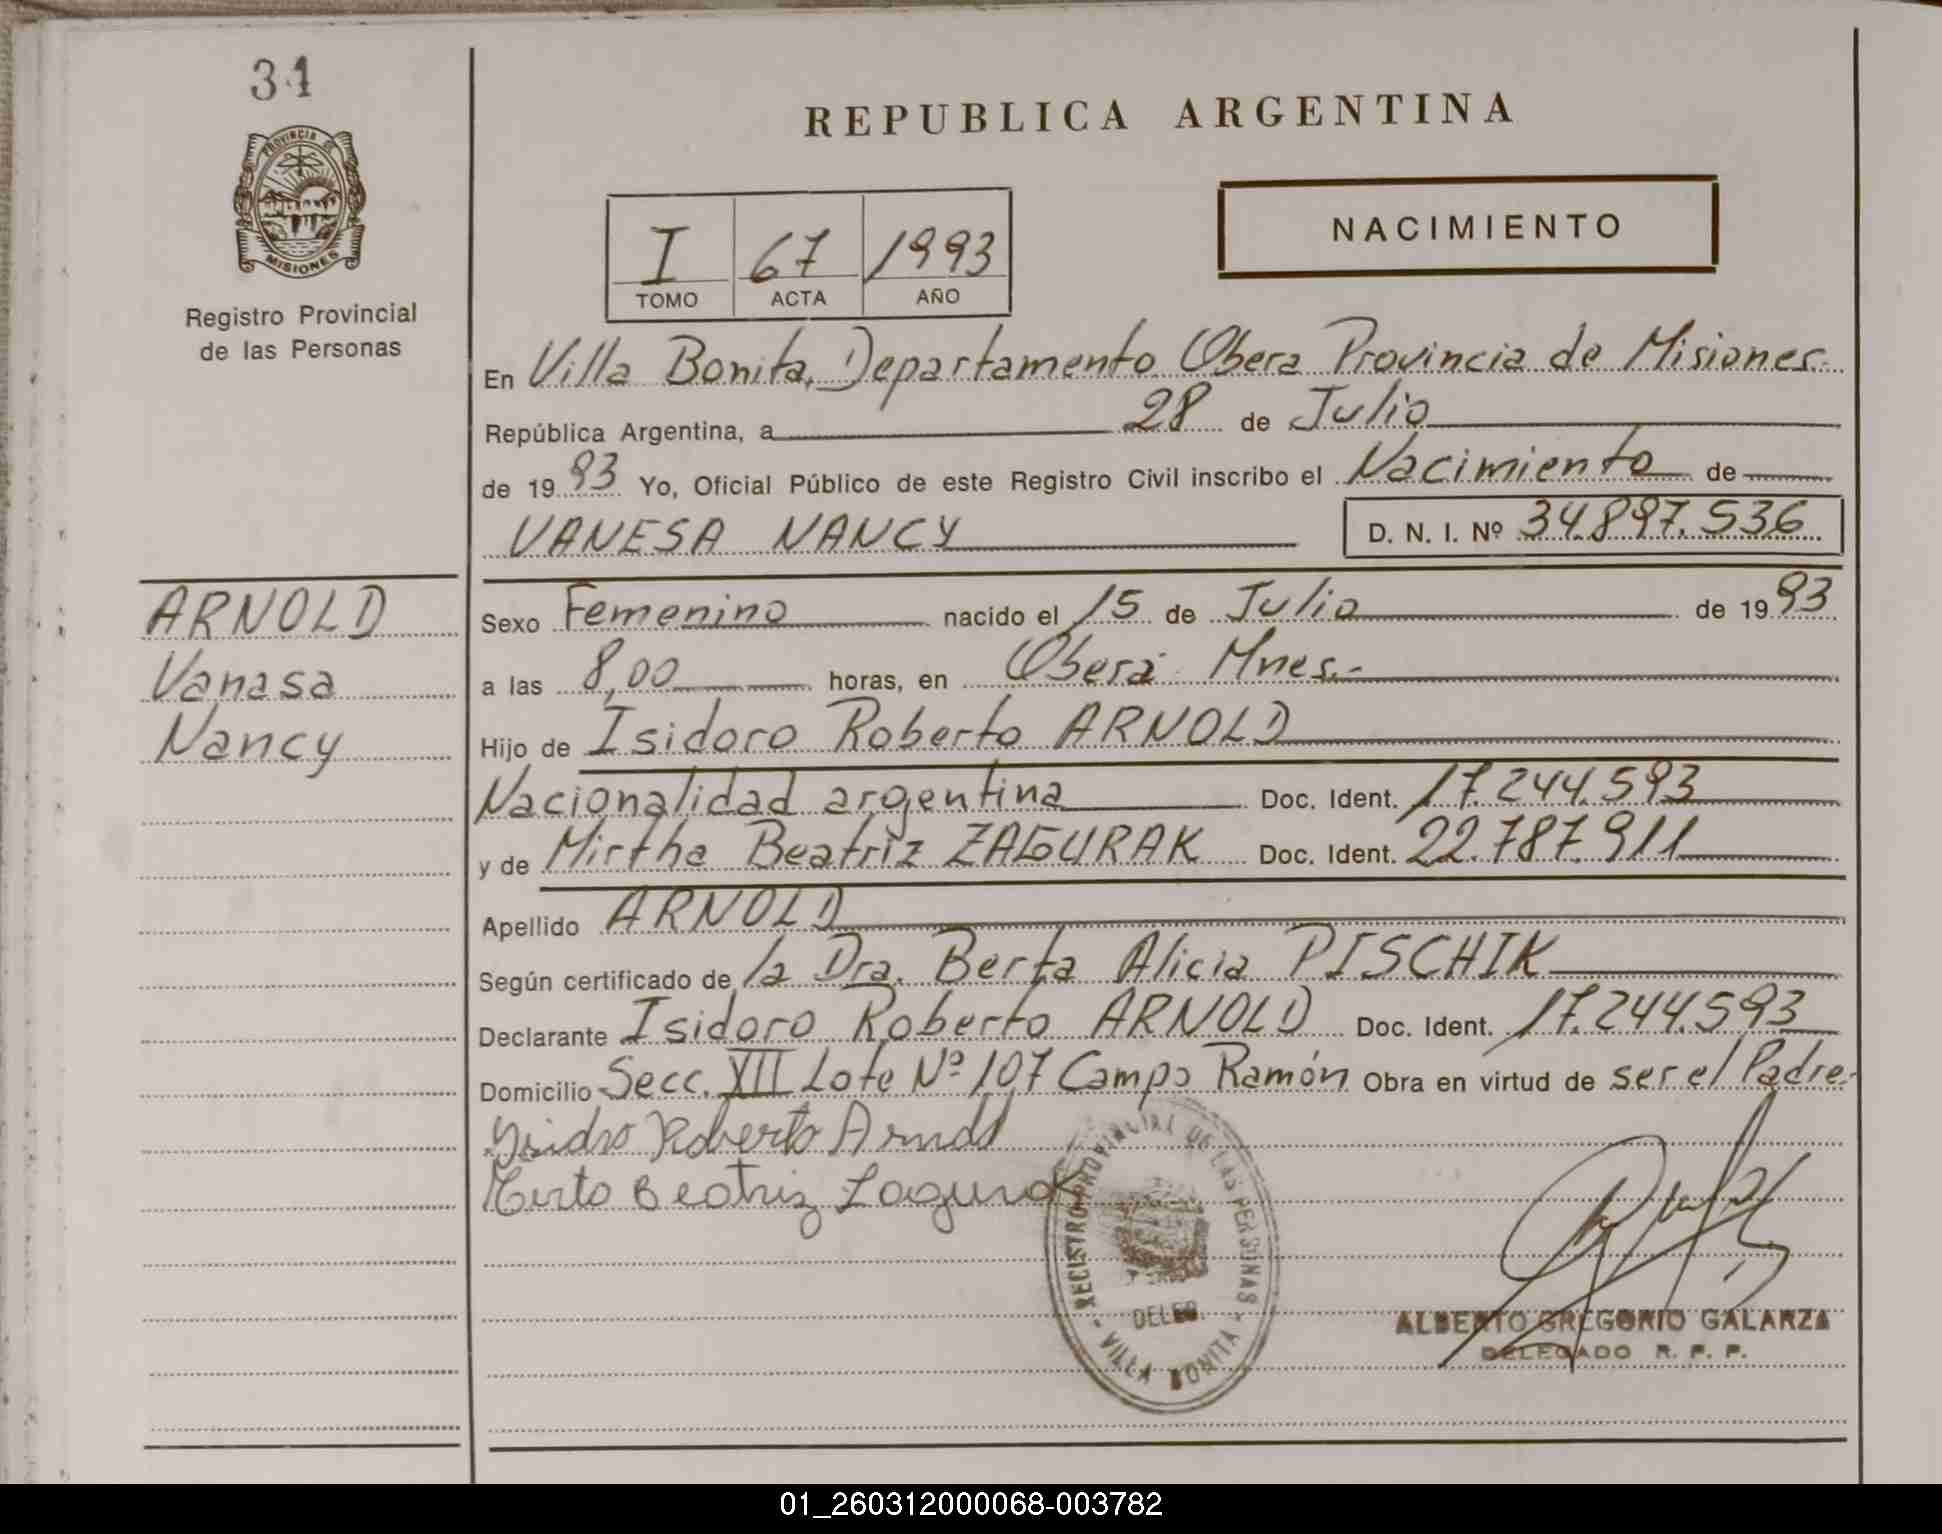 31
PROVINCIA DE
MISIONES
Registro Provincial
de las Personas
REPUBLICA ARGENTINA
I 67 1993
TOMO ACTA AÑO
NACIMIENTO
En Villa Bonita, Departamento Obera Provincia de Misiones.-
República Argentina, a 28 de Julio
de 1993 Yo, Oficial Público de este Registro Civil inscribo el Nacimiento de
VANESA NANCY D. N. I. Nº 34.897.536
ARNOLD
Vanasa
Nancy
Sexo Femenino nacido el 15 de Julio de 1993
a las 8,00 horas, en Oberá Mnes.-
Hijo de Isidoro Roberto ARNOLD
Nacionalidad argentina Doc. Ident. 17.244.593
y de Mirtha Beatriz ZAGURAK Doc. Ident. 22.787.911
Apellido ARNOLD
Según certificado de la Dra. Berta Alicia PISCHIK
Declarante Isidoro Roberto ARNOLD Doc. Ident. 17.244.593
Domicilio Secc. XII Lote Nº 107 Campo Ramón Obra en virtud de ser el Padre.-
Isidro Roberto Arnold
Mirta Beatriz Zagurak
REGISTRO PROVINCIAL DE LAS PERSONAS
DELEG.
- VILLA BONITA -
ALBERTO GREGORIO GALARZA
DELEGADO R. P. P.
01_260312000068-003782